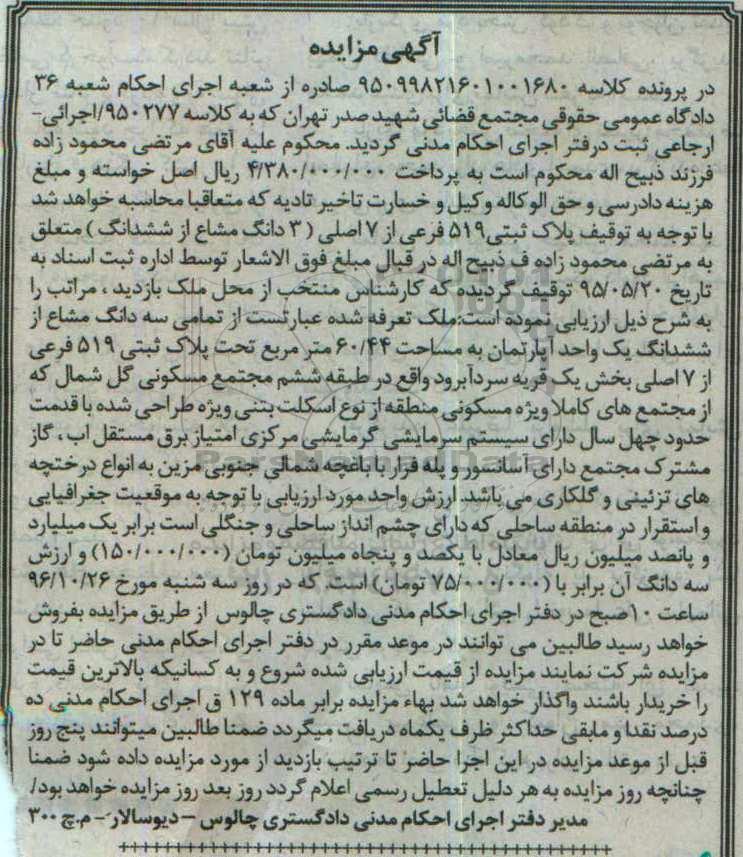 آگهی مزایده
در پرونده کلاسه ۹۵۰۹۹۸۲۱۶۰۱۰۰۱۶۸۰ صادره از شعبه اجرای احکام شعبه ۳۶
دادگاه عمومی حقوقی مجتمع قضائی شهید صدر تهران که به کلاسه ۹۵۰۲۷۷/اجرائی-
ارجاعی ثبت درفتر اجرای احکام مدنی گردید. محکوم علیه آقای مرتضی محمود زاده
فرزند ذبیح اله محکوم است به پرداخت ۴/۳۸۰/۰۰۰/۰۰۰ ریال اصل خواسته و مبلغ
هزینه دادرسی و حق الوکاله وکیل و خسارت تاخیر تادیه که متعاقبا محاسبه خواهد شد
با توجه به توقیف پلاک ثبتی ۵۱۹ فرعی از ۷ اصلی ( ۳ دانگ مشاع از ششدانگ ) متعلق
به مرتضی محمود زاده ف ذبیح اله در قبال مبلغ فوق الاشعار توسط اداره ثبت اسناد به
تاریخ ۹۵/۰۵/۲۰ توقیف گردیده که کارشناس منتخب از محل ملک بازدید ، مراتب را
به شرح ذیل ارزیابی نموده است:ملک تعرفه شده عبارتست از تمامی سه دانگ مشاع از
ششدانگ یک واحد آپارتمان به مساحت ۶۰/۴۴ متر مربع تحت پلاک ثبتی ۵۱۹ فرعی
از ۷ اصلی بخش یک قریه سردآبرود واقع در طبقه ششم مجتمع مسکونی گل شمال که
از مجتمع های کاملا ویژه مسکونی منطقه از نوع اسکلت بتنی ویژه طراحی شده با قدمت
حدود چهل سال دارای سیستم سرمایشی گرمایشی مرکزی امتیاز برق مستقل اب ، گاز
مشترک مجتمع دارای آسانسور و پله فرار با باغچه شمالی جنوبی مزین به انواع درختچه
های تزئینی و گلکاری می باشد. ارزش واحد مورد ارزیابی با توجه به موقعیت جغرافیایی
و استقرار در منطقه ساحلی که دارای چشم انداز ساحلی و جنگلی است برابر یک میلیارد
و پانصد میلیون ریال معادل با یکصد و پنجاه میلیون تومان (۱۵۰/۰۰۰/۰۰۰) و ارزش
سه دانگ آن برابر با (۷۵/۰۰۰/۰۰۰ تومان) است. که در روز سه شنبه مورخ ۹۶/۱۰/۲۶
ساعت ۱۰صبح در دفتر اجرای احکام مدنی دادگستری چالوس از طریق مزایده بفروش
خواهد رسید طالبین می توانند در موعد مقرر در دفتر اجرای احکام مدنی حاضر تا در
مزایده شرکت نمایند مزایده از قیمت ارزیابی شده شروع و به کسانیکه بالاترین قیمت
را خریدار باشند واگذار خواهد شد بهاء مزایده برابر ماده ۱۲۹ ق اجرای احکام مدنی ده
درصد نقدا و مابقی حداکثر ظرف یکماه دریافت میگردد ضمنا طالبین میتوانند پنج روز
قبل از موعد مزایده در این اجرا حاضر تا ترتیب بازدید از مورد مزایده داده شود ضمنا
چنانچه روز مزایده به هر دلیل تعطیل رسمی اعلام گردد روز بعد روز مزایده خواهد بود/
مدیر دفتر اجرای احکام مدنی دادگستری چالوس – دیوسالار – م.چ ۳۰۰